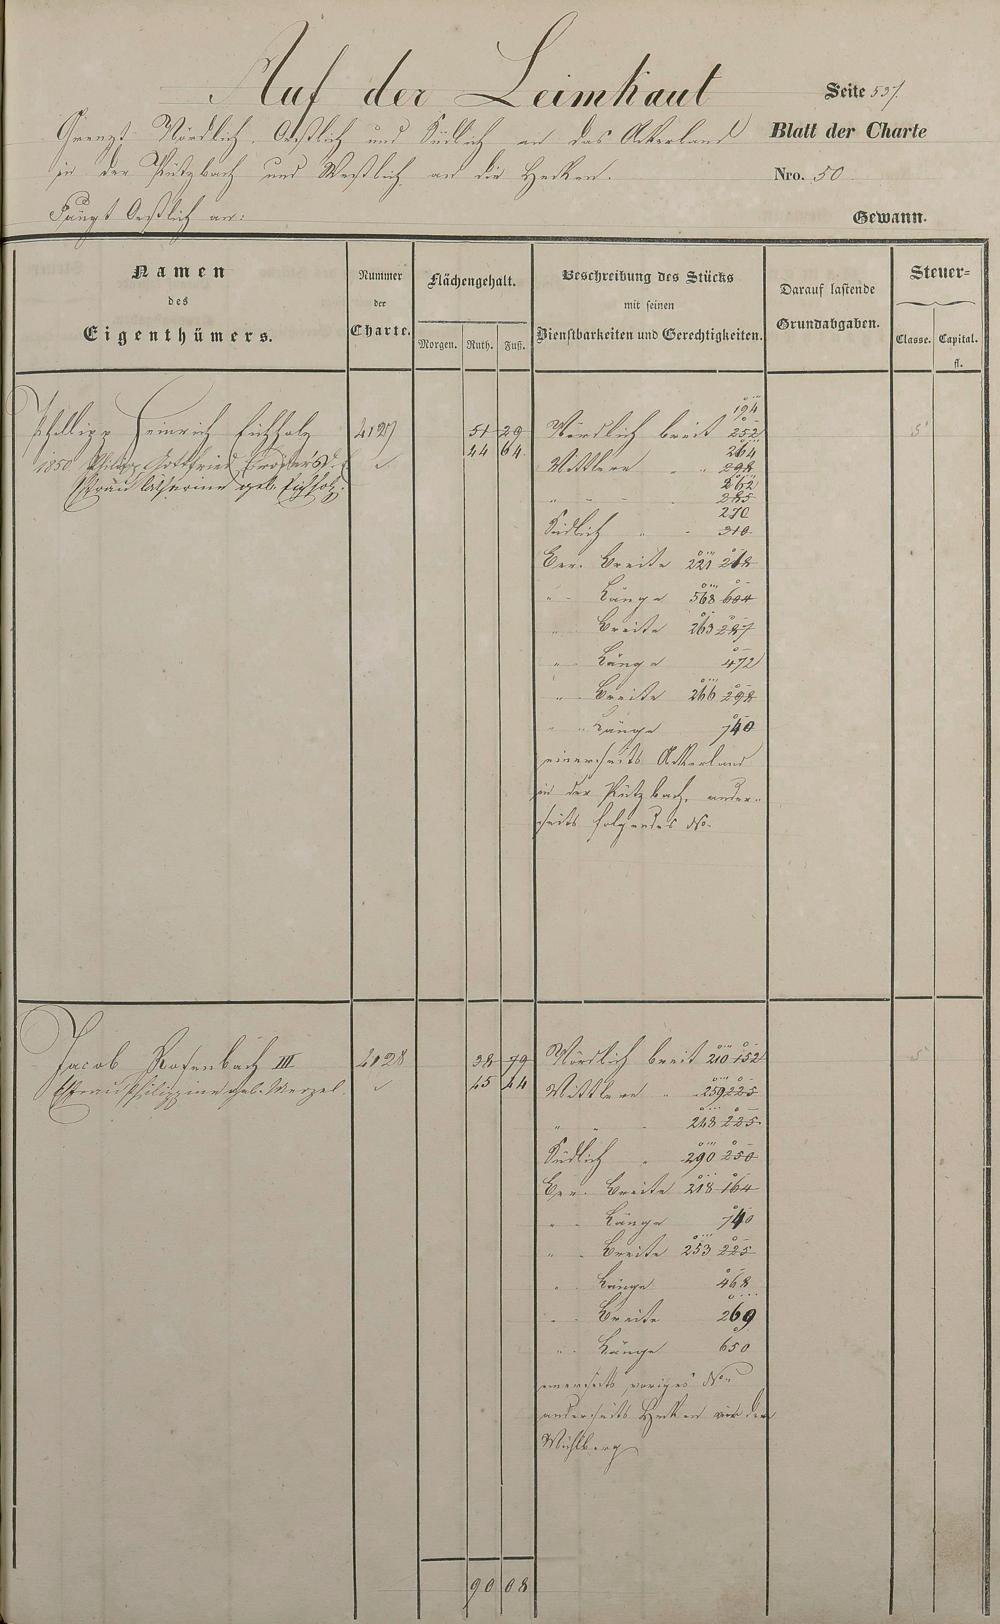 Auf der Leimkaut
Seite 537.
Grenzt Nördlich, Oestlich und Südlich an das Ackerland
Blatt der Charte
in der Pützbach und Westlich an die Hecken.
Nro. 50
Fängt Oestlich an:
Gewann.
Namen
des
Eigenthümers.
Nummer
der
Charte.
Flächengehalt.
Morgen. Ruth. Fuß.
Beschreibung des Stücks
mit seinen
Dienstbarkeiten und Gerechtigkeiten.
Darauf lastende
Grundabgaben.
Steuer=
Classe. Capital.
fl.
194
Phillipp Heinrich Eichholz 4127 51 29 Nördlich breit 252
1850 Philipp Gottfried 44 64 264
Mittlere " " 298
Ehefrau Catharine geb. Eichholz. 262
" " " 285
270
Südlich " " 310
Ver. Breite 221 268
" " Länge 568 604
" " Breite 263 287
" " Länge 472
" " Breite 266 298
" " Länge 740
einerseits Ackerland
in der Pützbach, ander-
seits folgendes No
Jacob Rosenbach III 4128 38 79 Nördlich breit 210 152
Ehefrau Philippine geb. Menzel. 45 44 Mittlere " 259 225
" " " 243 225
Südlich " 290 250
Ver. Breite 218 164
" " Länge 740
" " Breite 253 225
" " Länge 468
" " Breite 269
" " Länge 650
einerseits voriges No
anderseits Hecken vor dem
Mühlberg
90 08